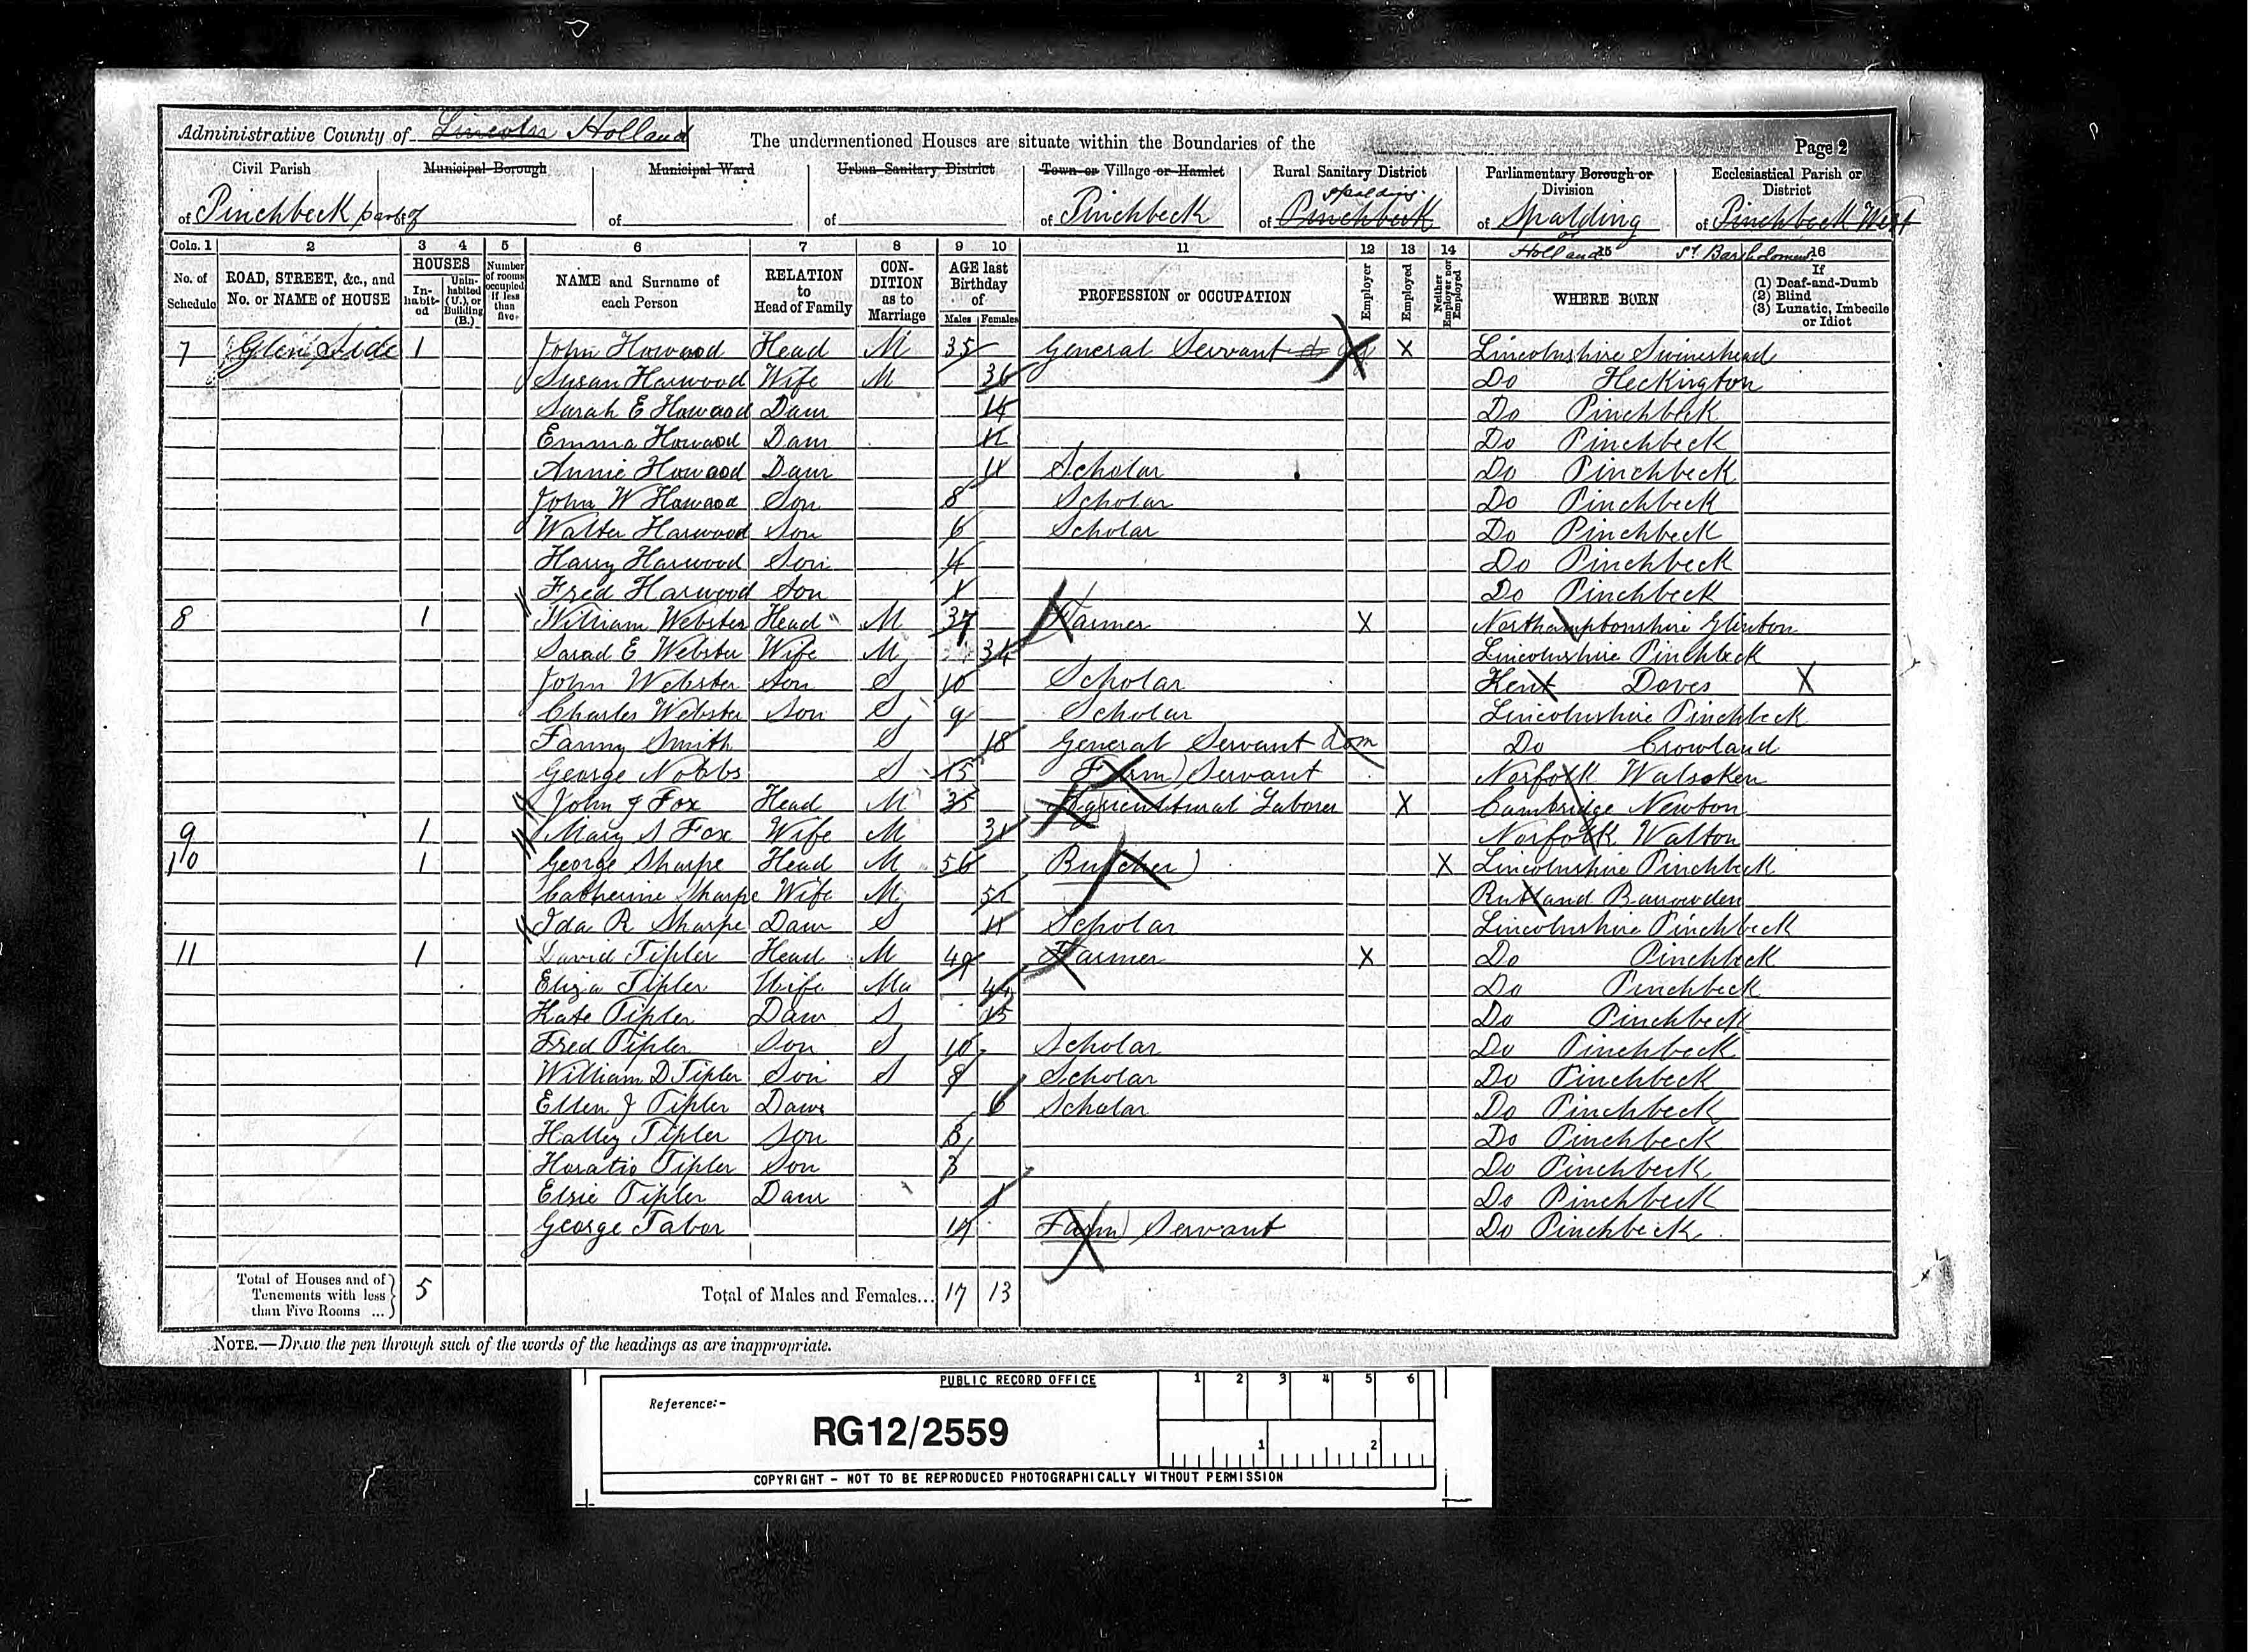 Administrative County of Lincoln Holland
The undermentioned Houses are situate within the Boundaries of the
Page 2
Civil Parish Municipal Borough Municipal Ward Urban Sanitary District Town or Village or Hamlet Rural Sanitary District Parliamentary Borough or Division Ecclesiastical Parish or District
of Pinchbeck part of of of of Pinchbeck of Pinchbeck Spalding of Spalding or Holland of Pinchbeck West St Bartholomew
Cols. 1 2 3 4 5 6 7 8 9 10 11 12 13 14 15 16
No. of Schedule ROAD, STREET, &c., and No. or NAME of HOUSE HOUSES Inhabited Uninhabited (U.), or Building (B.) Number of rooms occupied if less than five NAME and Surname of each Person RELATION to Head of Family CONDITION as to Marriage AGE last Birthday of Males Females PROFESSION or OCCUPATION Employer Employed Neither Employer nor Employed WHERE BORN If (1) Deaf-and-Dumb (2) Blind (3) Lunatic, Imbecile or Idiot
7 Glen Side 1 John Horwood Head M 35 General Servant X Lincolnshire Swineshead
Susan Harwood Wife M 36 Do Heckington
Sarah E Howaod Daur 14 Do Pinchbeck
Emma Howaod Daur Do Pinchbeck
Annie Howaod Daur 11 Scholar Do Pinchbeck
John W Howaod Son 8 Scholar Do Pinchbeck
Walter Harwood Son 6 Scholar Do Pinchbeck
Harry Harwood Son 4 Do Pinchbeck
Fred Harwood Son 1 Do Pinchbeck
8 1 William Webster Head M 37 Farmer X Northamptonshire Glinton
Sarad E Webster Wife M 34 Lincolnshire Pinchbeck
John Webster Son S 10 Scholar Kent Dover X
Charles Webster Son S 9 Scholar Lincolnshire Pinchbeck
Fanny Smith S 18 General Servant Dom Do Crowland
George Nobbs S 15 Farm Servant Norfolk Walsoken
John J Fox Head M 35 Agricultural Laborer X Cambridge Newton
9 1 Mary S Fox Wife M 31 Norfolk Walton
10 1 George Sharpe Head M 56 Butcher X Lincolnshire Pinchbeck
Catherine Sharpe Wife M 52 Rutland Barrowden
Ida R Sharpe Daur S 11 Scholar Lincolnshire Pinchbeck
11 1 David Tipler Head M 49 Farmer X Do Pinchbeck
Eliza Tipler Wife Ma 44 Do Pinchbeck
Kate Tipler Daur S 15 Do Pinchbeck
Fred Tipler Son S 10 Scholar Do Pinchbeck
William D Tipler Son S 8 Scholar Do Pinchbeck
Ellen J Tipler Daur 6 Scholar Do Pinchbeck
Halley Tipler Son Do Pinchbeck
Horatio Tipler Son 3 Do Pinchbeck
Elsie Tipler Daur 1 Do Pinchbeck
George Tabor 17 Farm Servant Do Pinchbeck
Total of Houses and of Tenements with less than Five Rooms ... 5 Total of Males and Females... 17 13
NOTE.—Draw the pen through such of the words of the headings as are inappropriate.
PUBLIC RECORD OFFICE
1 2 3 4 5 6
Reference:-
RG12/2559
1 2
COPYRIGHT - NOT TO BE REPRODUCED PHOTOGRAPHICALLY WITHOUT PERMISSION